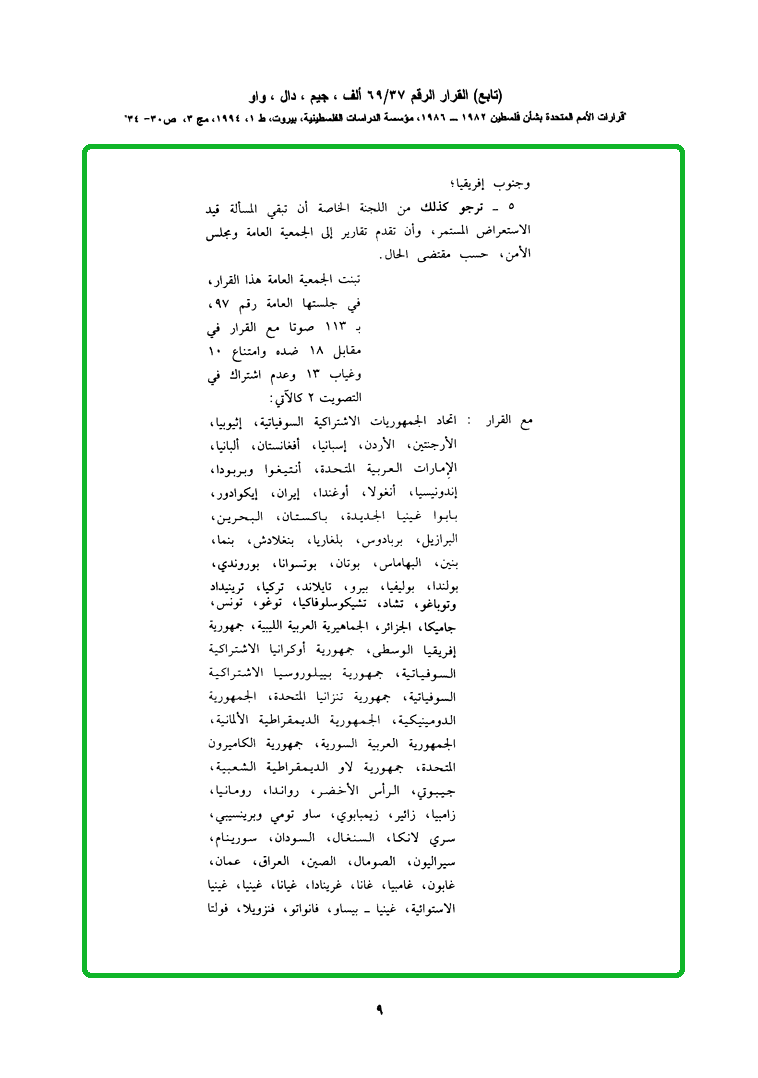 (تابع) القرار الرقم ٦٩/٣٧ ألف ، جيم ، دال ، واو
"قرارات الأمم المتحدة بشأن فلسطين ١٩٨٢ ـــ ١٩٨٦، مؤسسة الدراسات الفلسطينية، بيروت، ط ١، ١٩٩٤، مج ٣، ص٣٠- ٣٤"
وجنوب إفريقيا؛
٥ ـ ترجو كذلك من اللجنة الخاصة أن تبقي المسألة قيد
الاستعراض المستمر، وأن تقدم تقارير إلى الجمعية العامة ومجلس
الأمن، حسب مقتضى الحال.
تبنت الجمعية العامة هذا القرار،
في جلستها العامة رقم ٩٧،
بـ ١١٣ صوتا مع القرار في
مقابل ١٨ ضده وامتناع ١٠
وغياب ١٣ وعدم اشتراك في
التصويت ٢ كالآتي:
مع القرار : اتحاد الجمهوريات الاشتراكية السوفياتية، إثيوبيا،
الأرجنتين، الأردن، إسبانيا، أفغانستان، ألبانيا،
الإمارات العربية المتحدة، أنتيغوا وبربودا،
إندونيسيا، أنغولا، أوغندا، إيران، إيكوادور،
بابوا غينيا الجديدة، باكستان، البحرين،
البرازيل، بربادوس، بلغاريا، بنغلادش، بنما،
بنين، البهاماس، بوتان، بوتسوانا، بوروندي،
بولندا، بوليفيا، بيرو، تايلاند، تركيا، ترينيداد
وتوباغو، تشاد، تشيكوسلوفاكيا، توغو، تونس،
جاميكا، الجزائر، الجماهيرية العربية الليبية، جمهورية
إفريقيا الوسطى، جمهورية أوكرانيا الاشتراكية
السوفياتية، جمهورية بييلوروسيا الاشتراكية
السوفياتية، جمهورية تنزانيا المتحدة، الجمهورية
الدومينيكية، الجمهورية الديمقراطية الألمانية،
الجمهورية العربية السورية، جمهورية الكاميرون
المتحدة، جمهورية لاو الديمقراطية الشعبية،
جيبوتي، الرأس الأخضر، رواندا، رومانيا،
زامبيا، زائير، زيمبابوي، ساو تومي وبرينسيبي،
سري لانكا، السنغال، السودان، سورينام،
سيراليون، الصومال، الصين، العراق، عمان،
غابون، غامبيا، غانا، غرينادا، غيانا، غينيا، غينيا
الاستوائية، غينيا ـ بيساو، فانواتو، فنزويلا، فولتا
٩